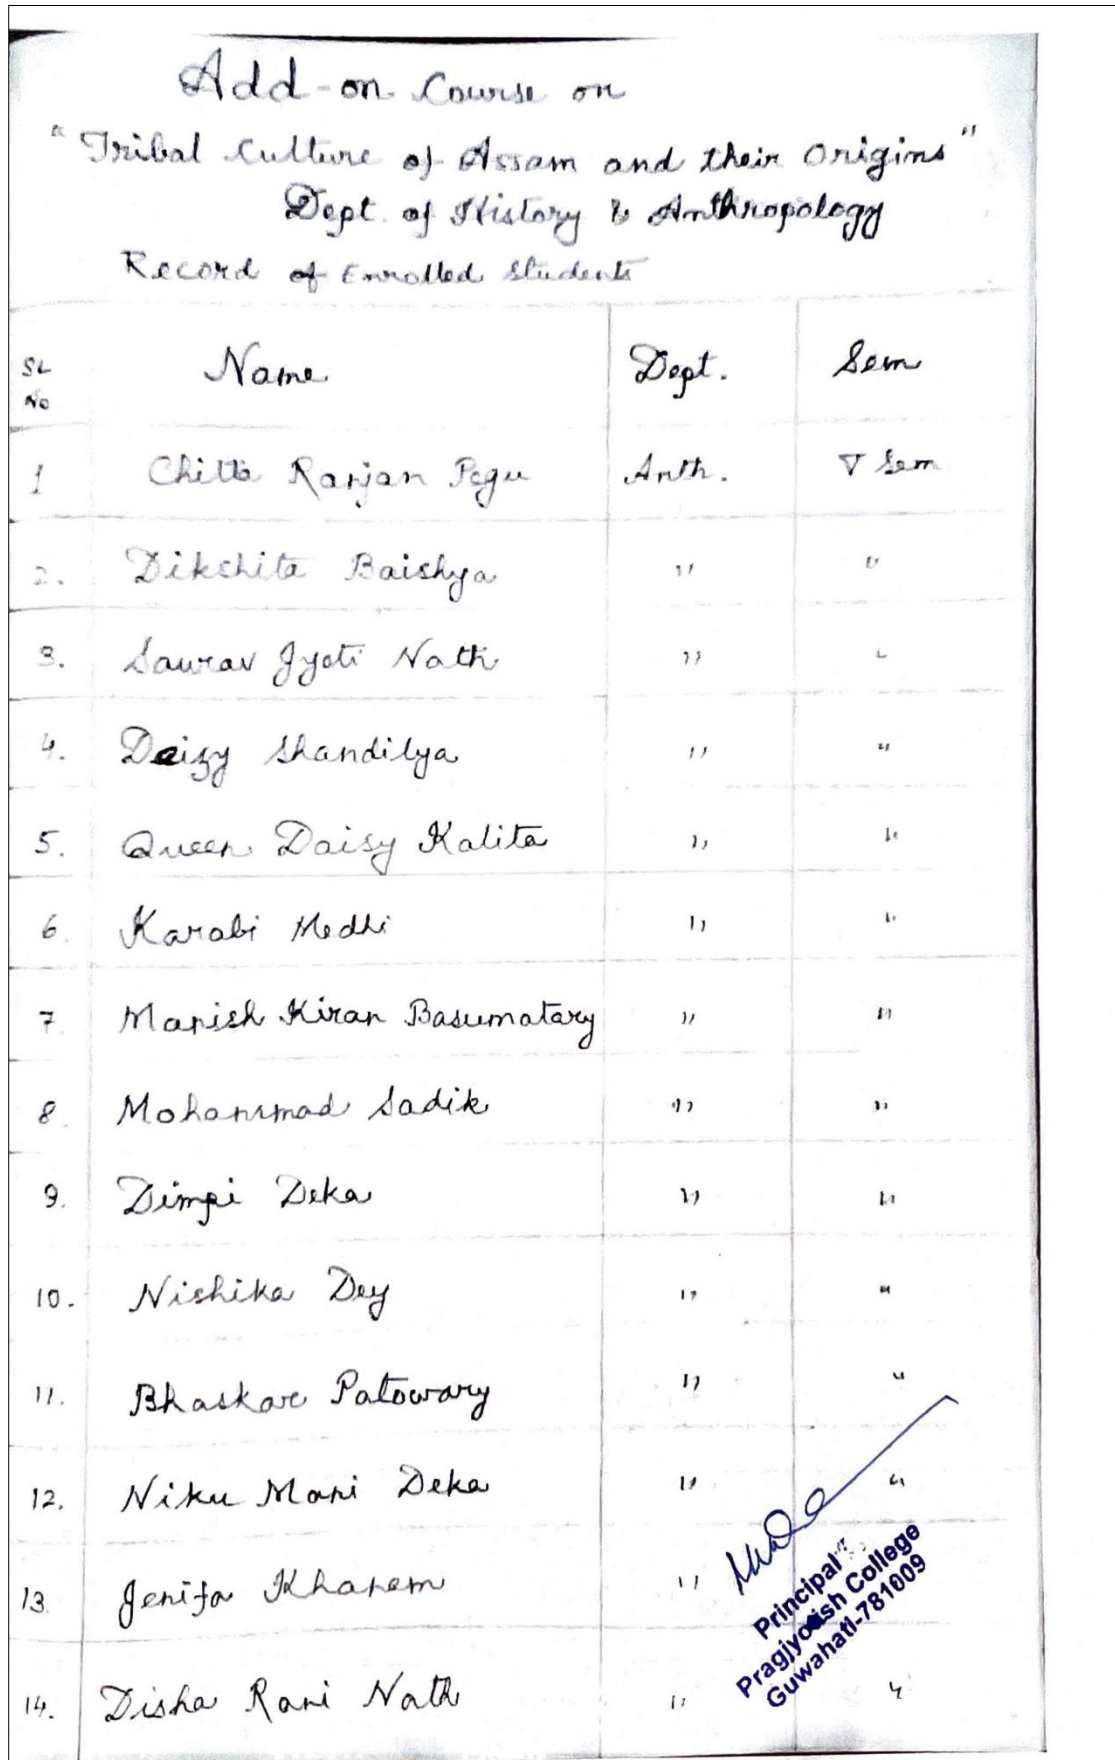 Add-on Course on
"Tribal Culture of Assam and their Origins"
Dept. of History & Anthropology
Record of Enrolled Students
SL No Name Dept. Sem
1 Chitta Ranjan Pegu Anth. V Sem
2. Dikshita Baishya " "
3. Saurav Jyoti Nath " "
4. Daizy Shandilya " "
5. Queen Daisy Kalita " "
6. Karabi Medhi " "
7 Manish Kiran Basumatary " "
8. Mohammad Sadik " "
9. Dimpi Deka " "
10. Nishika Dey " "
11. Bhaskar Patowary " "
12. Niku Mani Deka " "
13 Jenifa Khanam " "
14. Disha Rani Nath " "
Principal
Pragjyotish College
Guwahati-781009